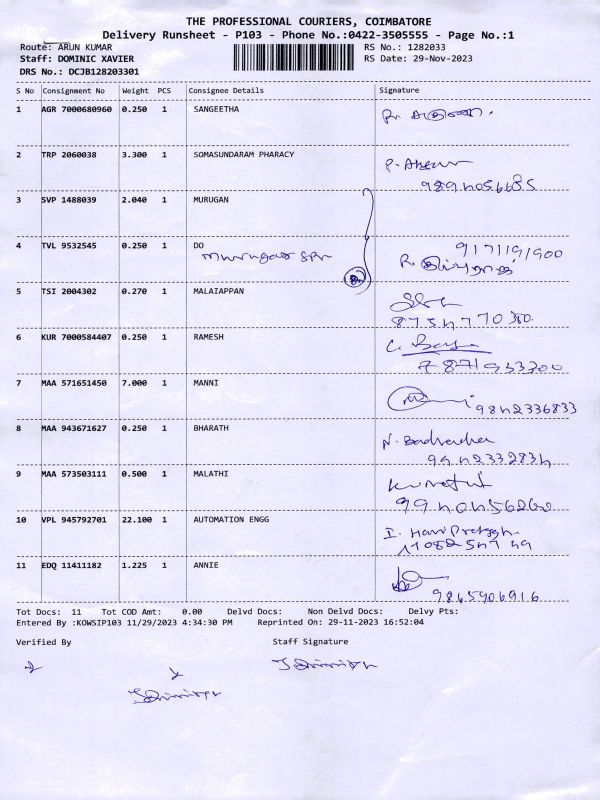 THE PROFESSIONAL COURIERS, COIMBATORE
Delivery Runsheet - P103 - Phone No.:0422-3505555 - Page No.:1
Route: ARUN KUMAR RS No.: 1282033
Staff: DOMINIC XAVIER RS Date: 29-Nov-2023
DRS No.: DCJB128203301
S No Consignment No Weight PCS Consignee Details Signature
1 AGR 7000680960 0.250 1 SANGEETHA
2 TRP 2060038 3.300 1 SOMASUNDARAM PHARACY
3 SVP 1488039 2.040 1 MURUGAN
4 TVL 9532545 0.250 1 DO
9171191900
5 TSI 2004302 0.270 1 MALAIAPPAN
6 KUR 7000584407 0.250 1 RAMESH
7871933300
7 MAA 571651450 7.000 1 MANNI
9842336833
8 MAA 943671627 0.250 1 BHARATH
9442332834
9 MAA 573503111 0.500 1 MALATHI
9940456260
10 VPL 945792701 22.100 1 AUTOMATION ENGG
11 EDQ 11411182 1.225 1 ANNIE
9865906916
Tot Docs: 11 Tot COD Amt: 0.00 Delvd Docs: Non Delvd Docs: Delvy Pts:
Entered By :KOWSIP103 11/29/2023 4:34:30 PM Reprinted On: 29-11-2023 16:52:04
Verified By Staff Signature